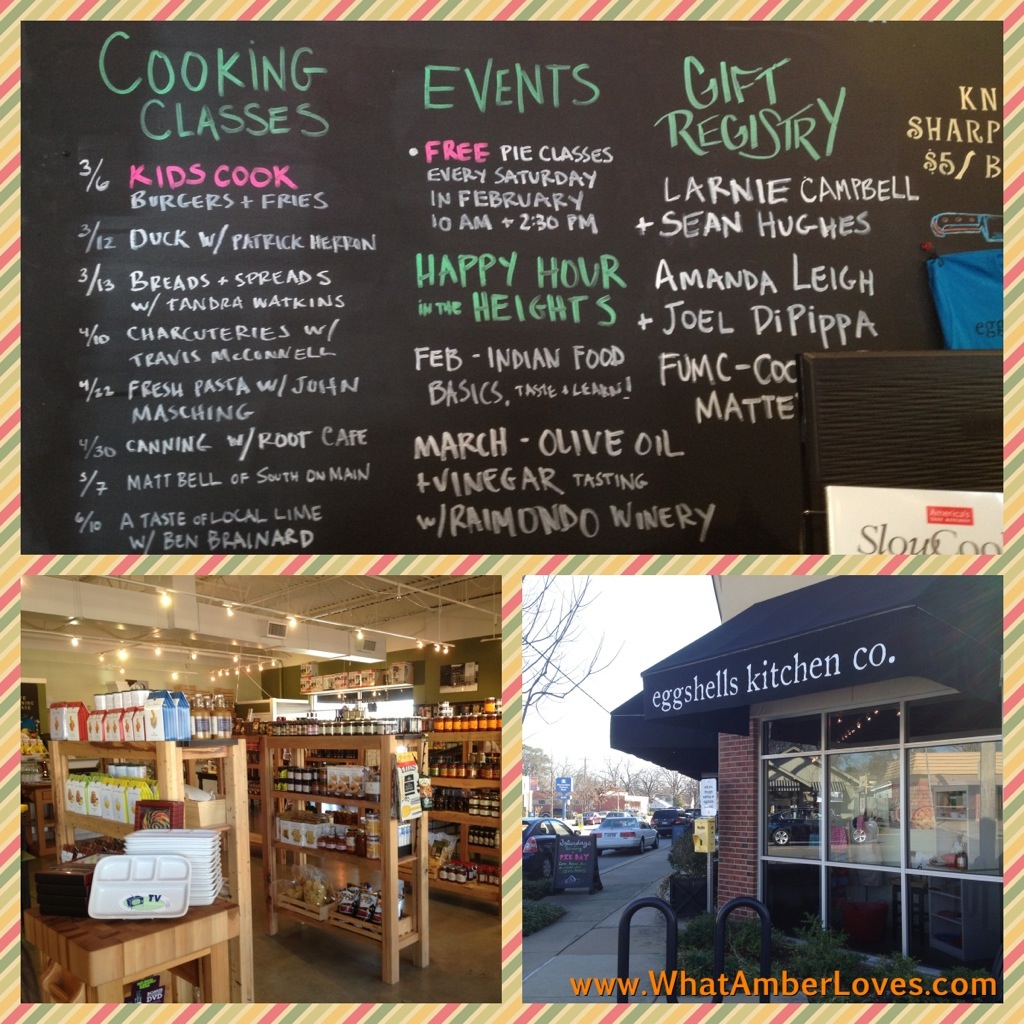 COOKING
CLASSES
3/6 KIDS COOK
BURGERS + FRIES
3/12 DUCK W/ PATRICK HERRON
3/13 BREADS + SPREADS
W/ TANDRA WATKINS
4/10 CHARCUTERIES W/
TRAVIS McCONNELL
4/22 FRESH PASTA W/ JOHN
MASCHING
4/30 CANNING W/ ROOT CAFE
5/7 MATT BELL OF SOUTH ON MAIN
6/10 A TASTE OF LOCAL LIME
W/ BEN BRAINARD
EVENTS
• FREE PIE CLASSES
EVERY SATURDAY
IN FEBRUARY
10 AM + 2:30 PM
HAPPY HOUR
IN THE HEIGHTS
FEB - INDIAN FOOD
BASICS, TASTE + LEARN!
MARCH - OLIVE OIL
+ VINEGAR TASTING
W/ RAIMONDO WINERY
GIFT
REGISTRY
LARNIE CAMPBELL
+ SEAN HUGHES
AMANDA LEIGH
+ JOEL DIPIPPA
FUMC - COO
MATTE
KN
SHARP
$5/ B
egg
America's
Slow Coo
TV
DVD
eggshells kitchen co.
Saturdays
PIE DAY
www.WhatAmberLoves.com